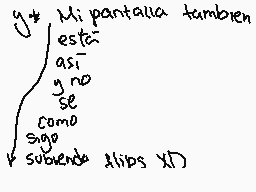 y* Mi pantalla tambien
está
así
y no
se
como
sigo
subiendo flips XD